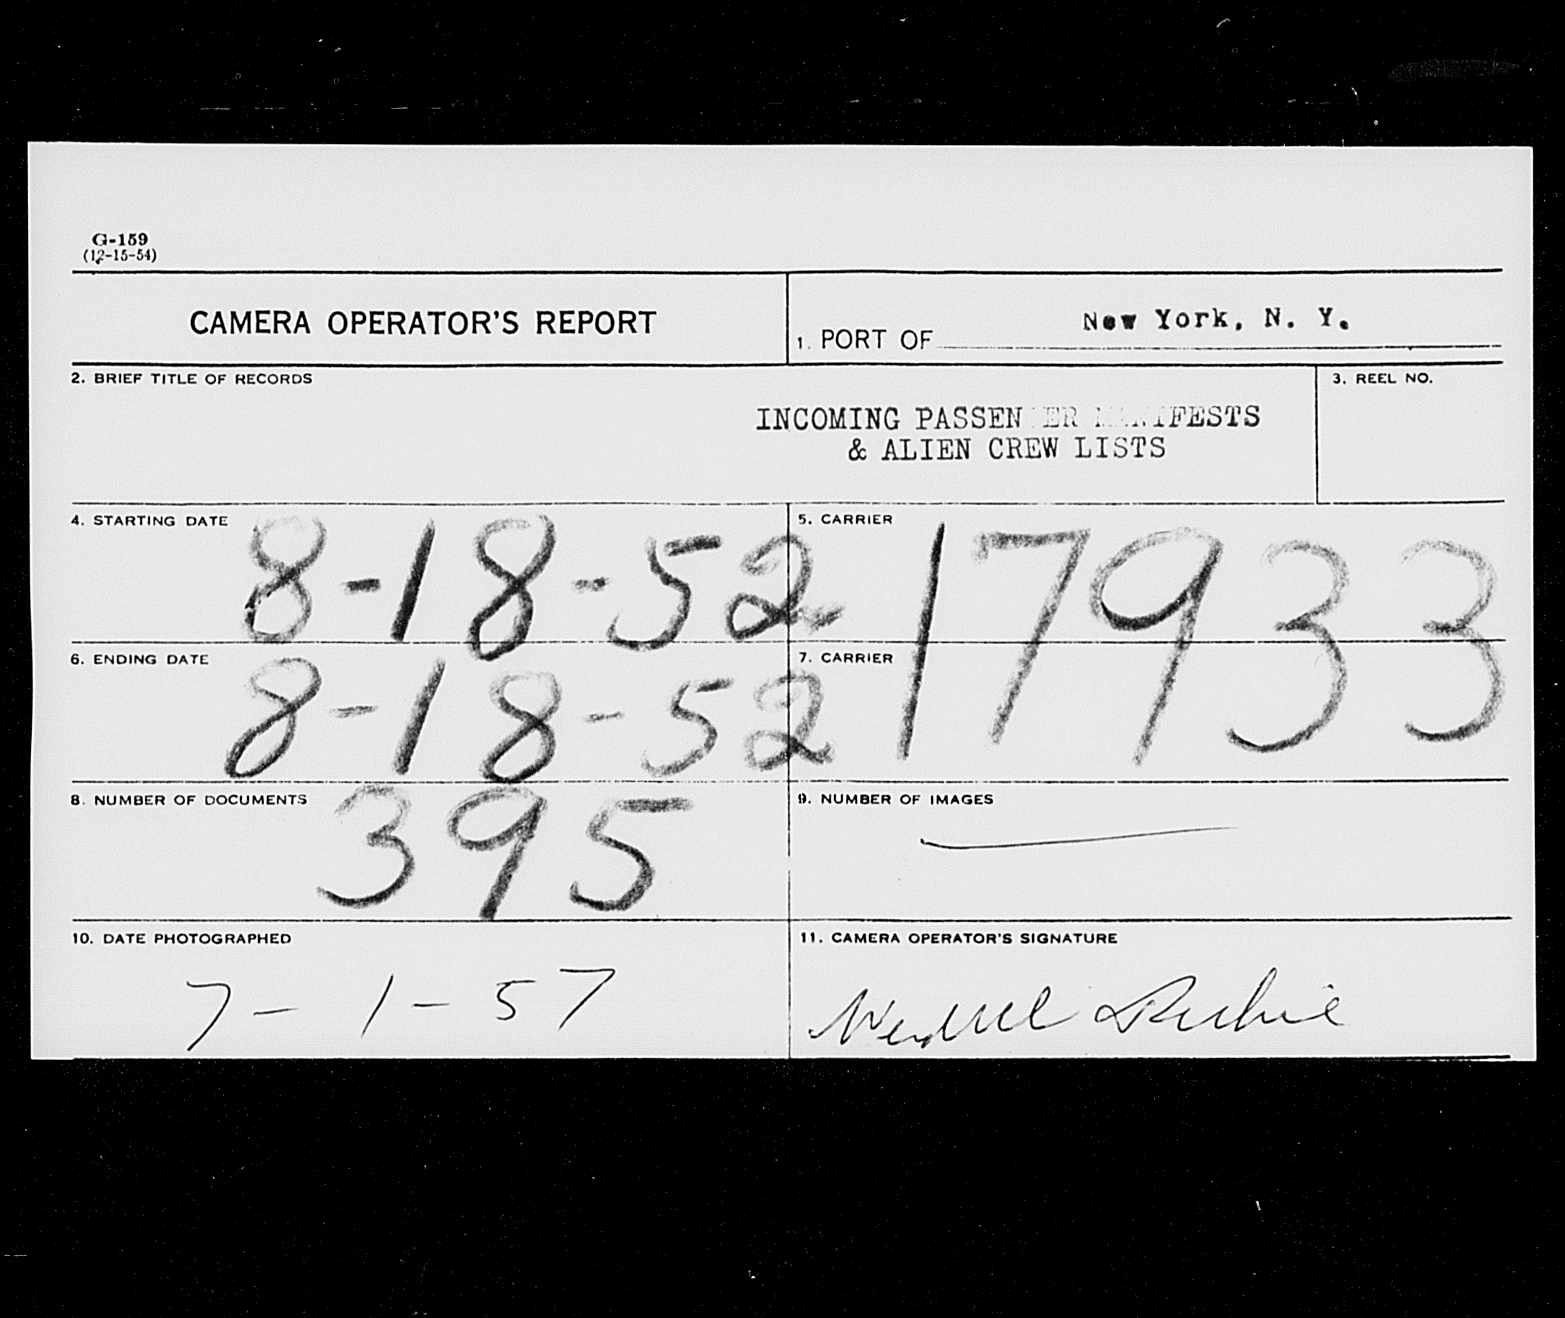 G-159
(12-15-54)
CAMERA OPERATOR'S REPORT
1. PORT OF New York, N. Y.
2. BRIEF TITLE OF RECORDS
INCOMING PASSENGER MANIFESTS
& ALIEN CREW LISTS
3. REEL NO.
4. STARTING DATE 8-18-52
5. CARRIER 17933
6. ENDING DATE 8-18-52
7. CARRIER
8. NUMBER OF DOCUMENTS 395
9. NUMBER OF IMAGES
10. DATE PHOTOGRAPHED
7-1-57
11. CAMERA OPERATOR'S SIGNATURE